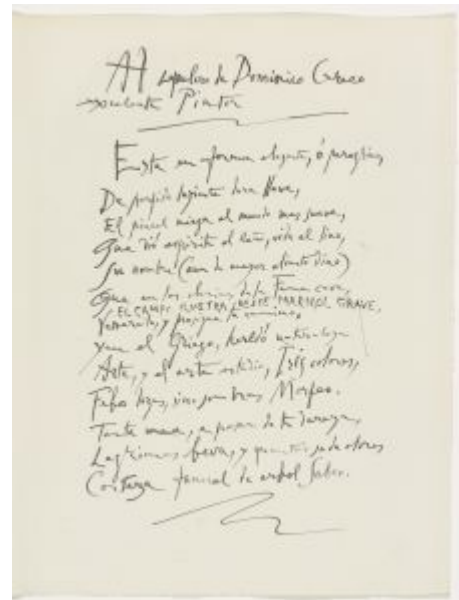 Al sepulcro de Dominico Greco
excelente Pintor
Esta en forma elegante, ó peregrino,
De porfido luciente dura llave,
El pincel niega al mundo mas suave,
Que dió espiritu al leño, vida al lino,
Su nombre (aun de mayor aliento dino)
Que en los clarines de la Fama cave,
EL CAMPO ILUSTRA DESTE MARMOL GRAVE,
Venerale, y prosigue tu camino.
Yace el Griego, heredó naturaleza
Arte, y el arte estudio, Iris colores,
Febo luzes, sino sombras Morfeo.
Tanta urna, a pesar de su dureza,
Lagrimas beva, y quantos suda olores
Corteza funeral de arbol Sabeo.